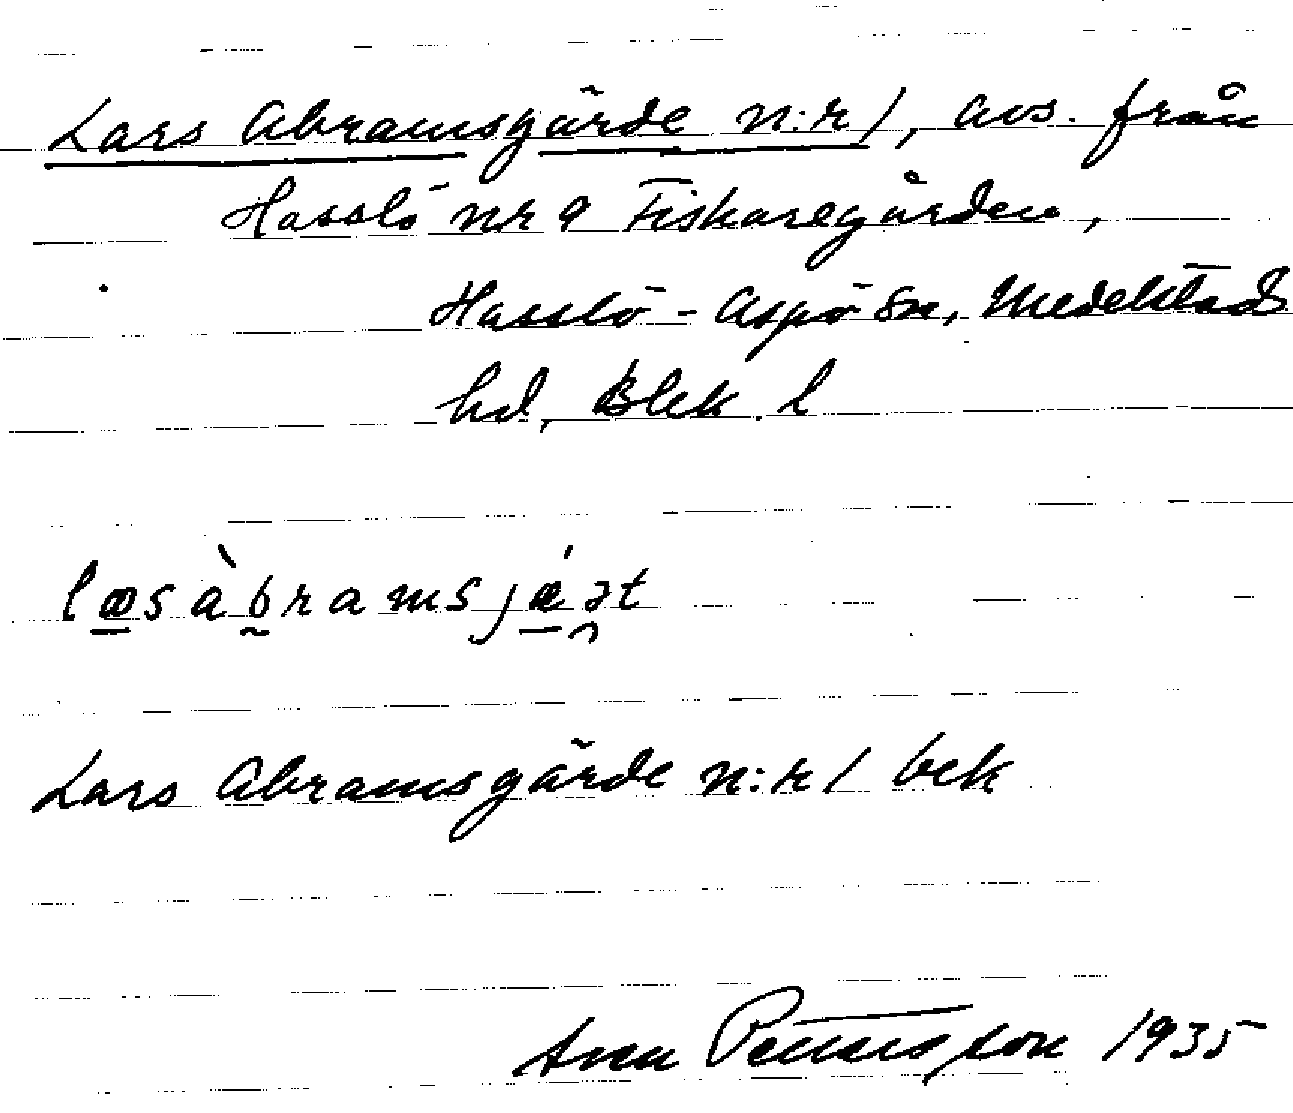 Lars Abramsgärde n:r 1, avs. från
Hasslö nr 9 Fiskaregården,
Hasslö - Aspö sn, Medelstad
hd, Blek. l
læsàbramsjǽət
Lars Abramsgärde n:r 1 bek
Sven Pettersson 1935